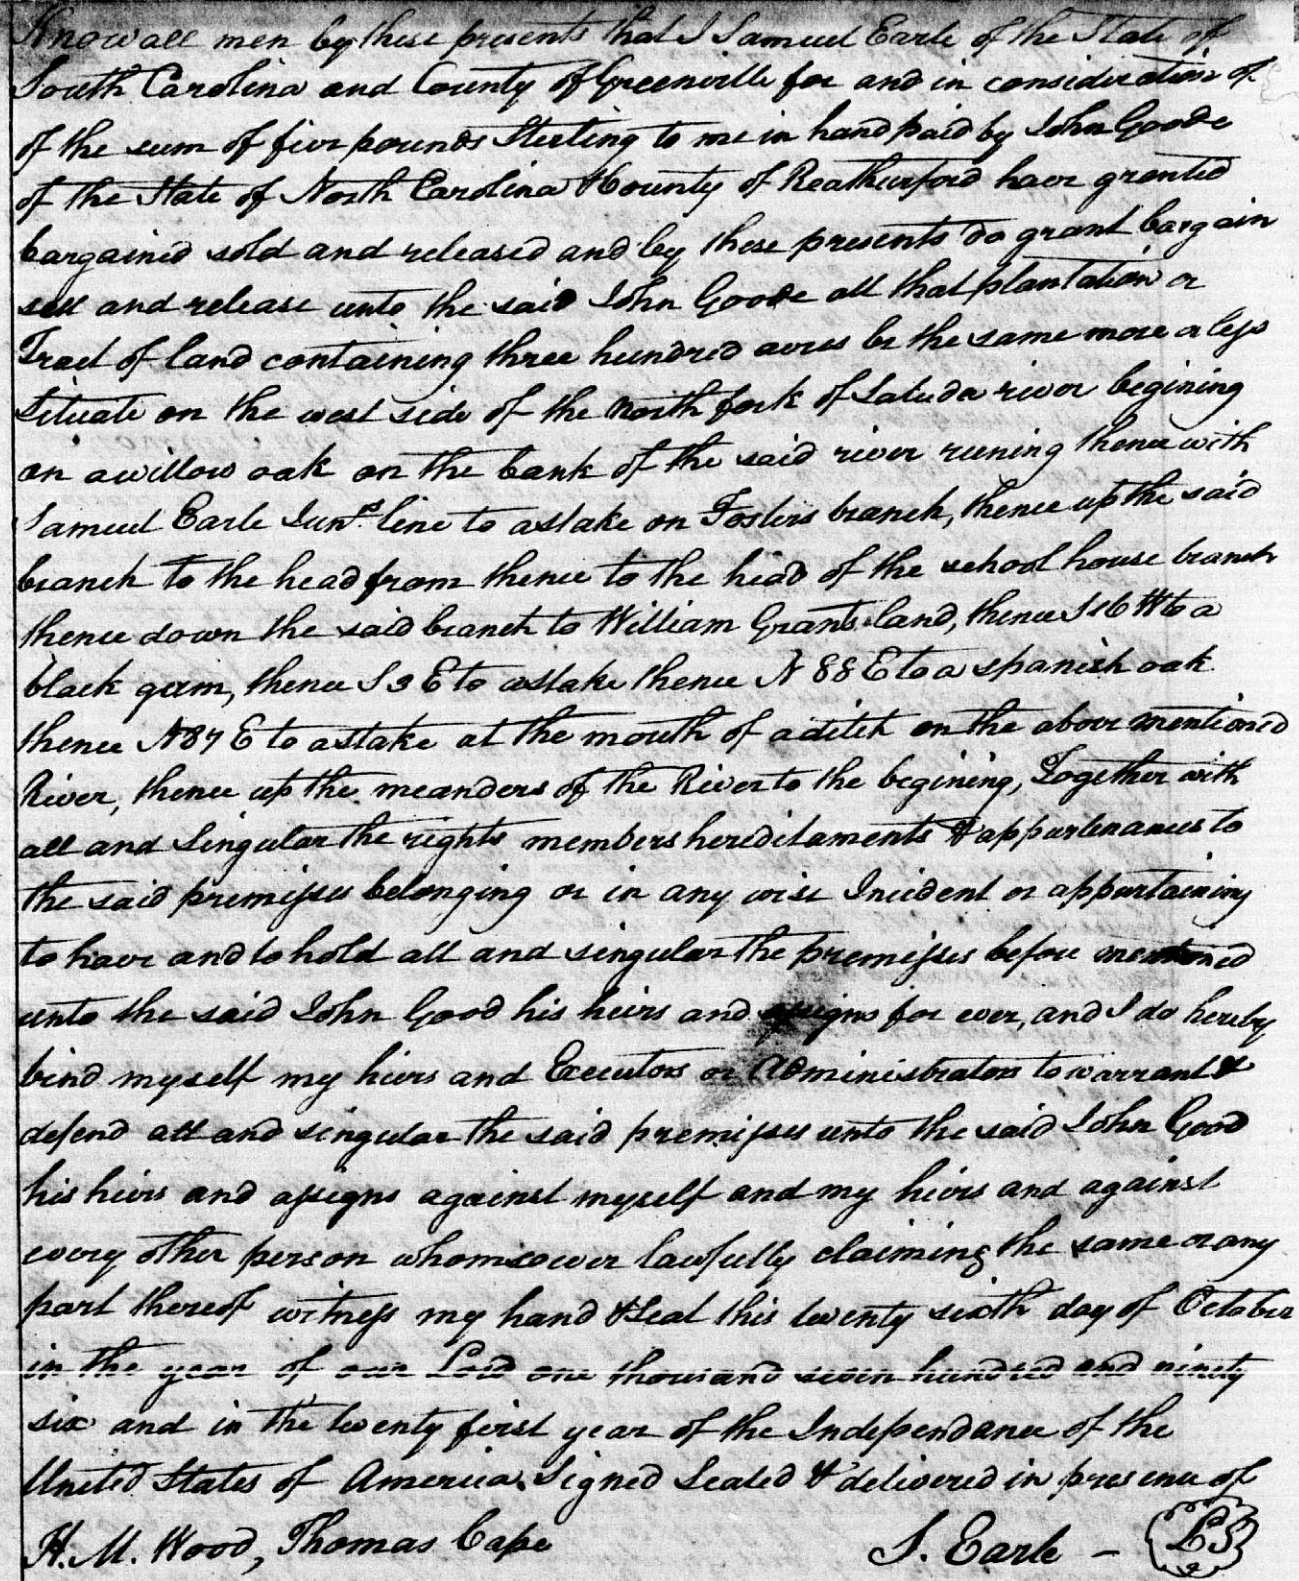 Know all men by these presents that I Samuel Earle of the State of
South Carolina and County of Greenville for and in consideration of
of the sum of five pounds Sterling to me in hand paid by John Goode
of the State of North Carolina & County of Reatherford have granted
bargained sold and released and by these presents do grant bargain
sell and release unto the said John Goode all that plantation or
Tract of land containing three hundred acres be the same more or less
Situate on the west side of the north fork of Saluda river begining
on a willow oak on the bank of the said river runing thence with
Samuel Earle Junrs. line to a stake on Fosters branch, thence up the said
branch to the head from thence to the head of the school house branch
thence down the said branch to William Grants land, thence S 16 W to a
black gum, thence S 3 E to a stake thence N 88 E to a spanish oak
thence N 87 E to a stake at the mouth of a ditch on the above mentioned
River, thence up the meanders of the River to the begining, Together with
all and Singular the rights members hereditaments & appurtenances to
the said premisses belonging or in any wise Incident or appertaining
to have and to hold all and singular the premisses before mentioned
unto the said John Good his heirs and assigns for ever, and I do hereby
bind myself my heirs and Executors or Administrators to warrant &
defend all and singular the said premisses unto the said John Good
his heirs and assigns against myself and my heirs and against
every other person whomsoever lawfully claiming the same or any
part thereof witness my hand & Seal this twenty sixth day of October
in the year of our Lord one thousand seven hundred and ninety
six and in the twenty first year of the Independance of the
United States of America. Signed Sealed & delivered in presence of
H. M. Wood, Thomas Cape S. Earle – LS